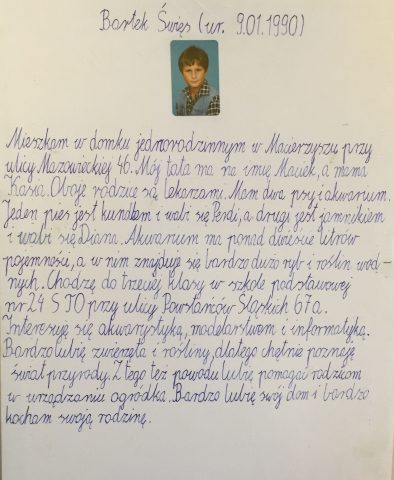 Bartek Święs (ur. 9.01.1990)
Mieszkam w domku jednorodzinnym w Macierzyszu przy
ulicy Mazowieckiej 40. Mój tata ma na imię Maciek, a mama
Kasia. Oboje rodzice są lekarzami. Mam dwa psy i akwarium.
Jeden pies jest kundlem i wabi się Perdi, a drugi jest jamnikiem
i wabi się Diana. Akwarium ma ponad dwieście litrów
pojemności, a w nim znajduje się bardzo dużo ryb i roślin wod-
nych. Chodzę do trzeciej klasy w szkole podstawowej
nr 24 STO przy ulicy Powstańców Śląskich 67a.
Interesuję się akwarystyką, modelarstwem i informatyką.
Bardzo lubię zwierzęta i rośliny, dlatego chętnie poznaję
świat przyrody. Z tego też powodu lubię pomagać rodzicom
w urządzaniu ogródka. Bardzo lubię swój dom i bardzo
kocham swoją rodzinę.